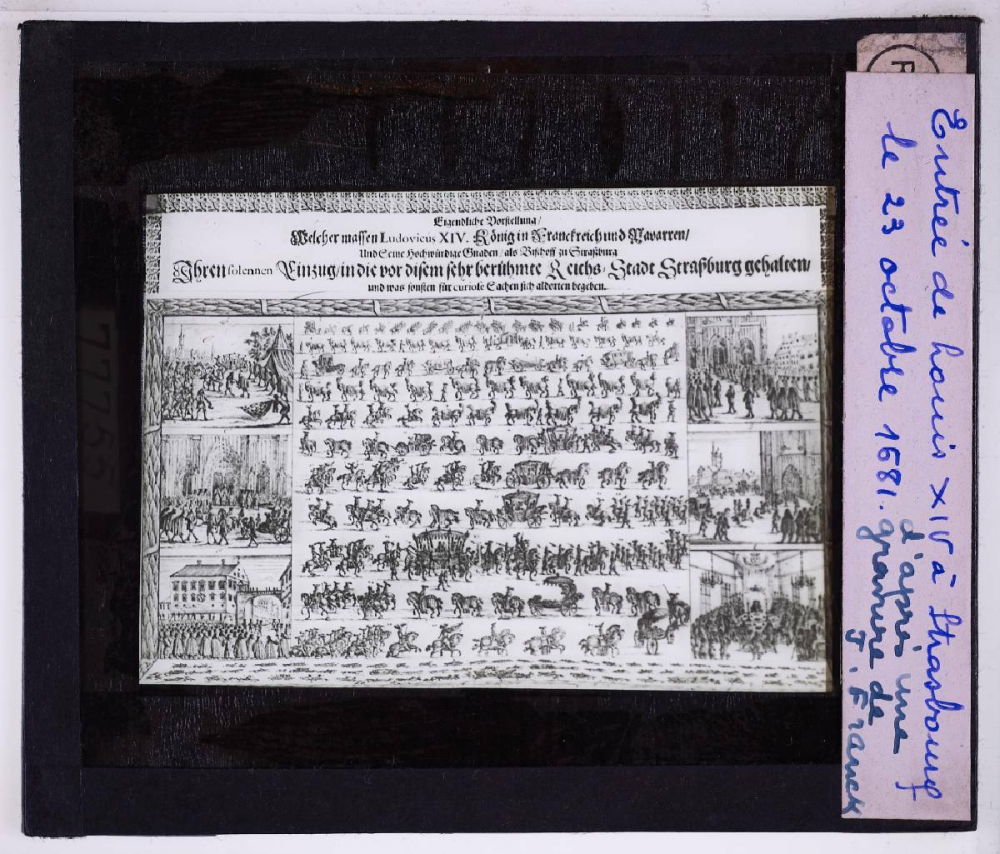 Eigendliche Vorstellung/
Welcher massen Ludovicus XIV. König in Franckreich und Navarren/
Und Seine Hochwürdige Gnaden/ als Bischoff zu Straßburg
Ihren solennen Einzug/ in die vor disem sehr berühmte Reichs-Stadt Straßburg gehalten/
und was sonsten für curiose Sachen sich aldorten begeben.
Entrée de Louis XIV à Strasbourg
le 23 octobre 1681.
d'après une
gravure de
J. Franck